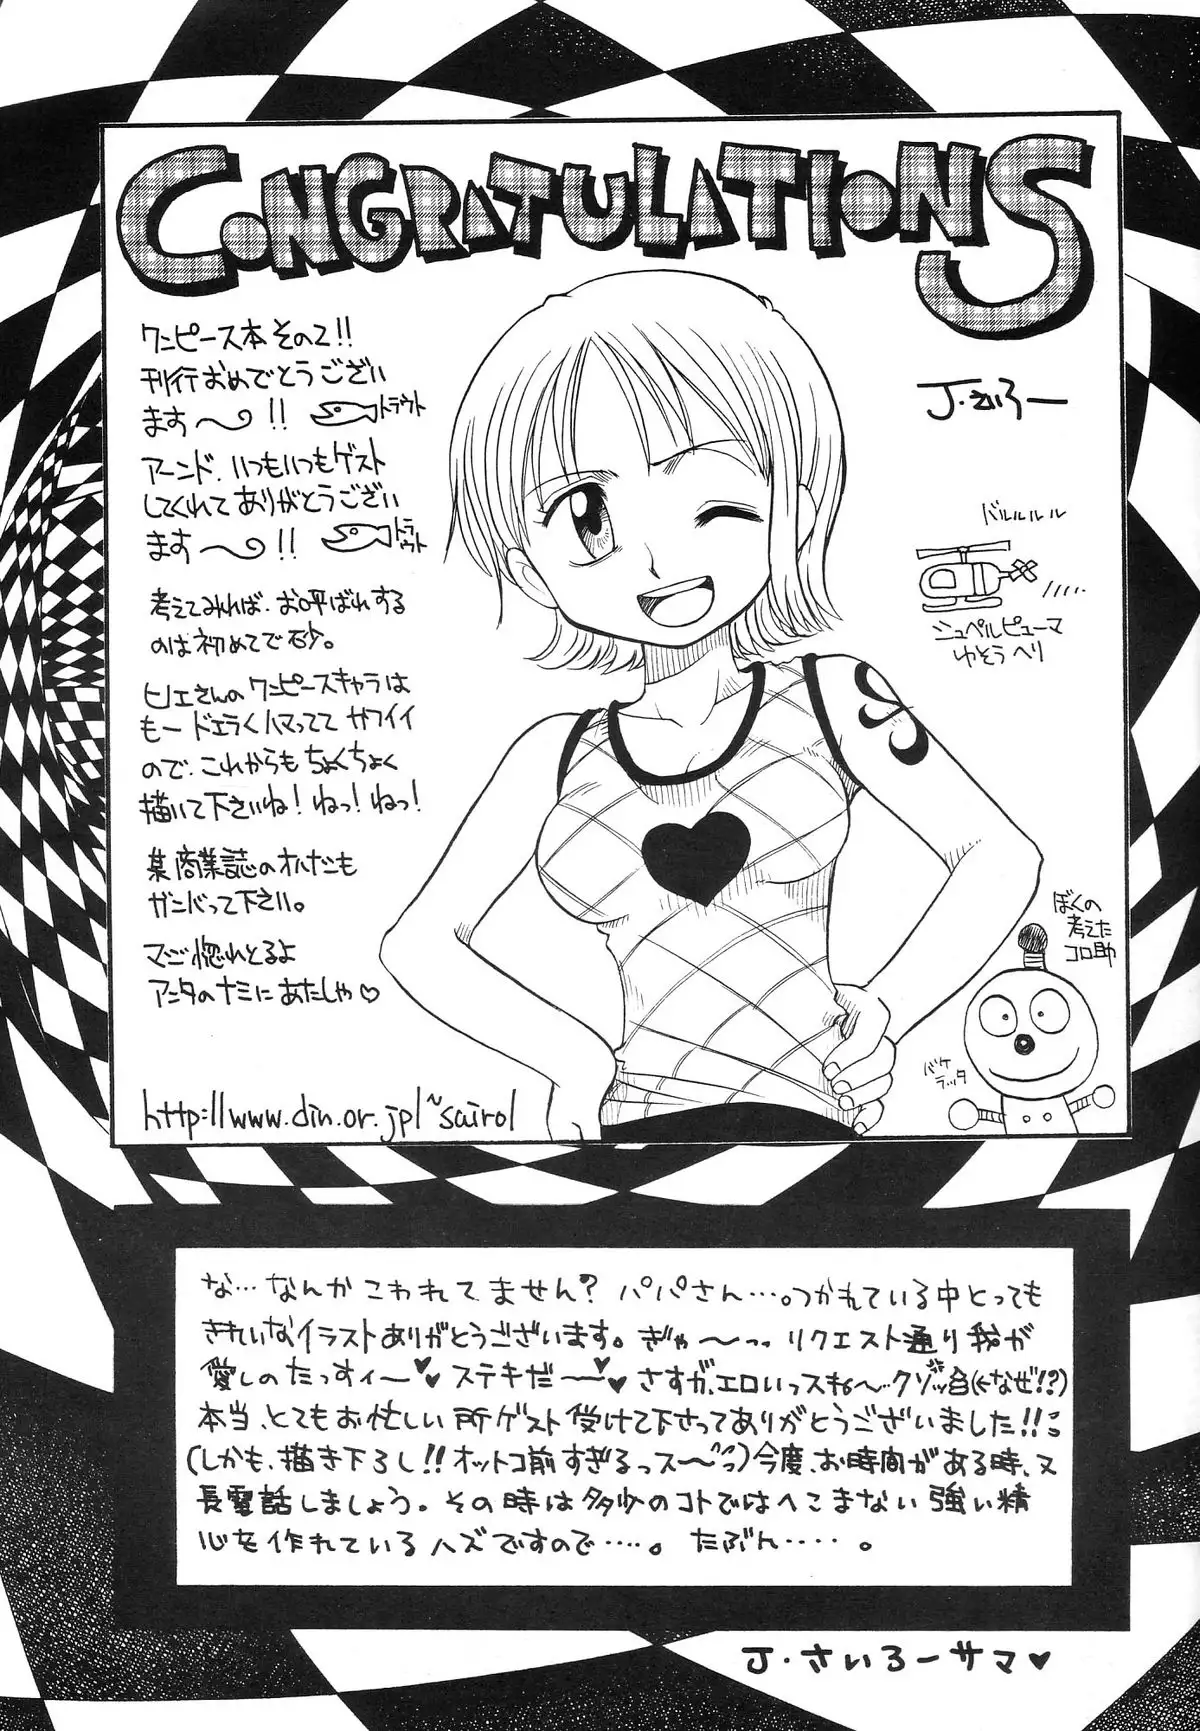 CONGRATULATIONS
ワンピース本その2!!
刊行おめでとうござい
ます〜!! トラウト
アーンド、いつもいつもゲスト
してくれてありがとうござい
ます〜!! トラウト
考えてみれば、お呼ばれする
のは初めてで砂。
ヒノエさんのワンピースキャラは
もードエラくハマってて カワイイ
ので、これからもちょくちょく
描いて下さいね!ねっ!ねっ!
某商業誌のオルだも
ガンバって下さい。
マジ惚れとるよ
アンタのナミにあたしゃ♡
http://www.din.or.jp/~sairo/
J・さいろー
バルルルル
シュペルピューマ
ゆそうヘリ
ぼくの
考えた
コロ助
バケ
ラッタ
な…なんかこわれてません?パパさん…。つかれている中とっても
きれいなイラストありがとうございます。ぎゃ〜っっ リクエスト通り我が
愛しのたっすィー♥ステキだー♥さすが、エロいっスね〜…クゾッ台(←なぜ!?)
本当、とてもお忙しい所ゲスト受けて下さってありがとうございました!!
(しかも、描き下ろし!!オットコ前すぎるっス〜)今度、お時間がある時、又
長電話しましょう。その時は多少のコトではへこまない強い精
心を作れているハズですので…。たぶん……。
J・さいろーサマ♥